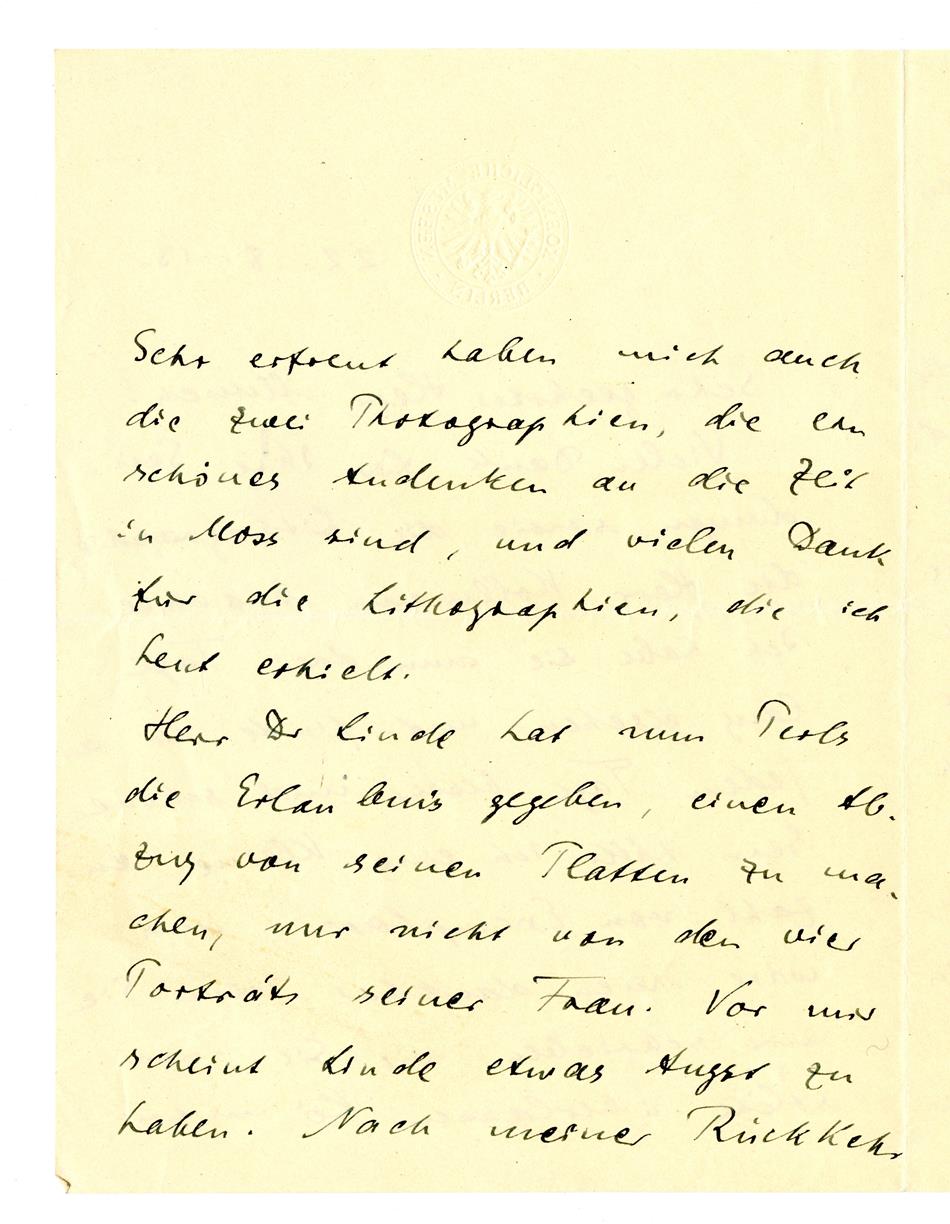 Sehr erfreut haben mich auch
die zwei Photographien, die ein
schönes Andenken an die Zeit
in Moss sind, und vielen Dank
für die Lithographien, die ich
heut erhielt.
Herr Dr Linde hat nun Perls
die Erlaubnis gegeben, einen Ab-
zug von seinen Platten zu ma-
chen, nur nicht von den vier
Porträts seiner Frau. Vor mir
scheint Linde etwas Angst zu
haben. Nach meiner Rückkehr